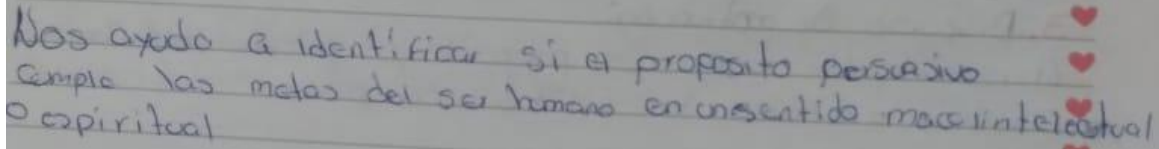 Nos ayuda a identificar si el proposito persuasivo
cumple las metas del ser humano en un sentido mas intelectual
o espiritual